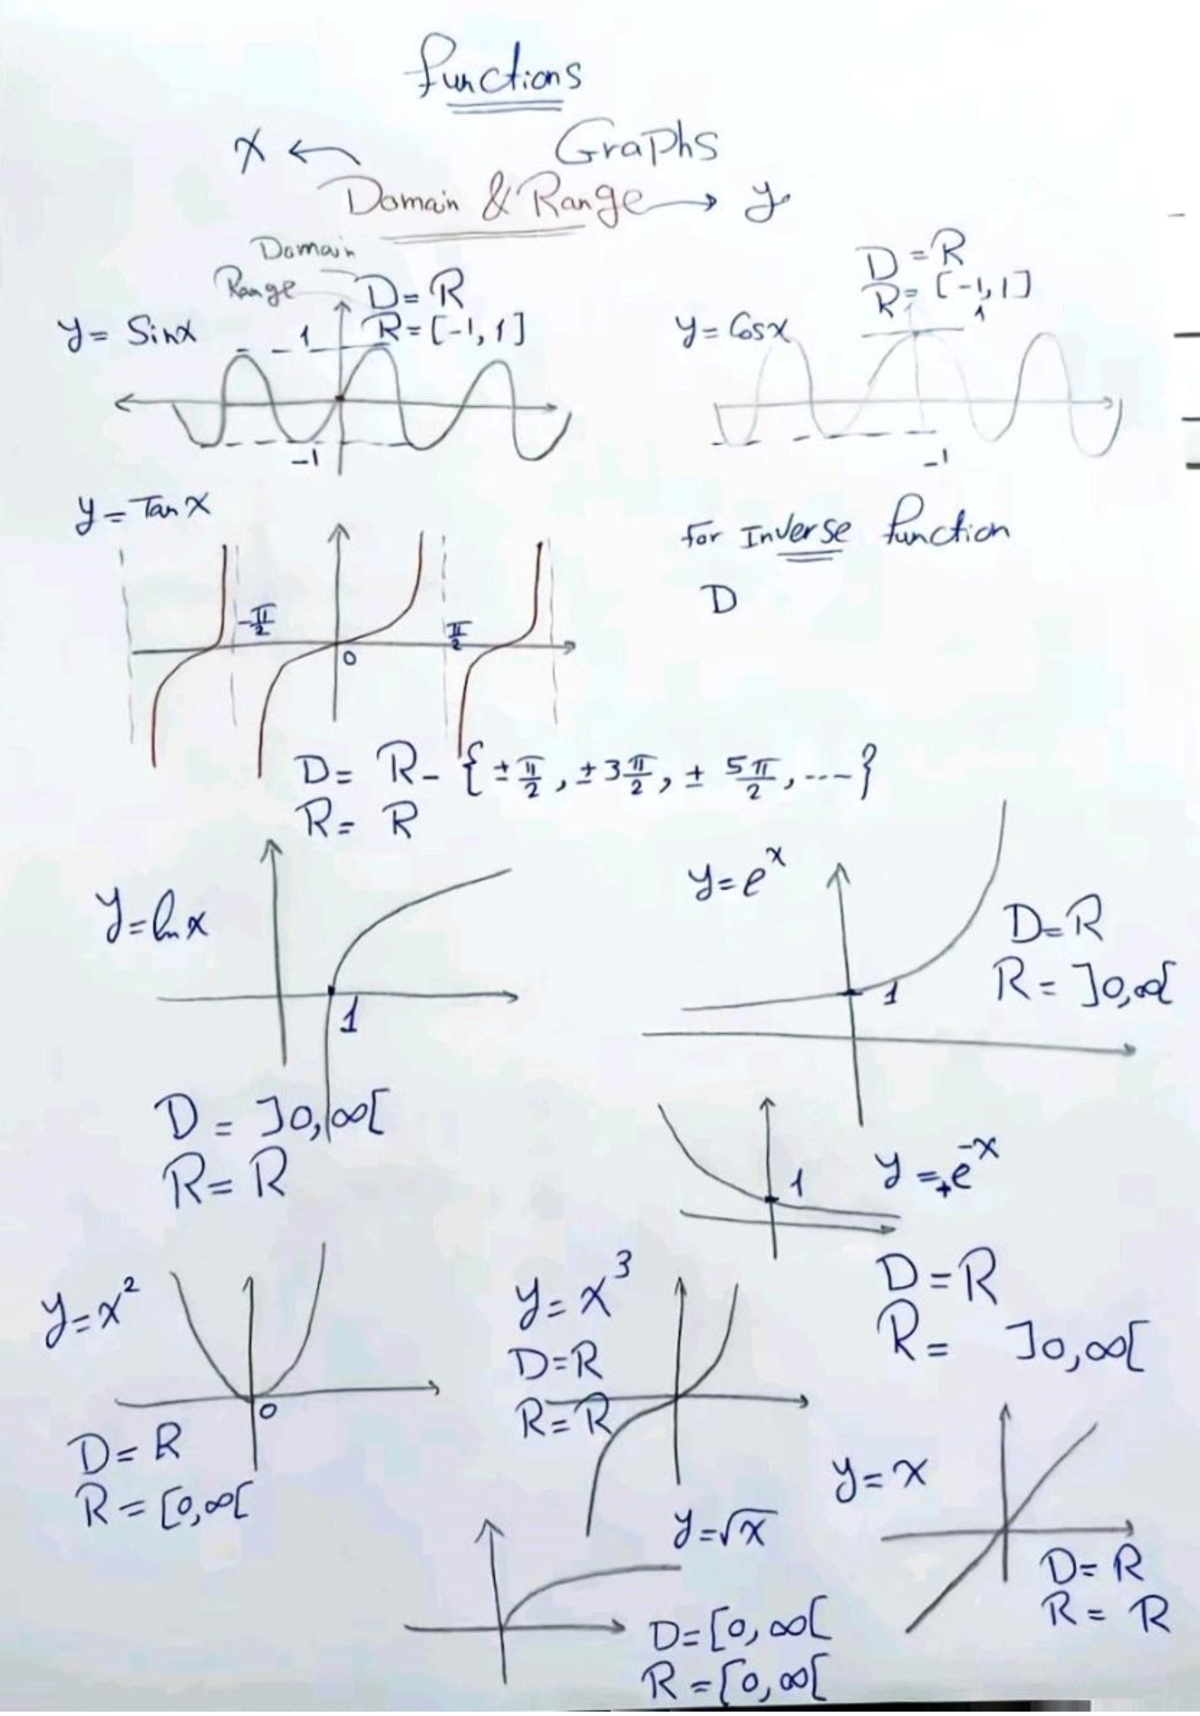 Functions
Graphs
x ← Domain & Range → y
Domain
Range
D = R
R = [-1, 1]
y = Sinx
1
-1
D = R
R = [-1, 1]
y = Cosx
1
-1
y = Tan X
-π/2
0
π/2
For Inverse function
D
D = R - {±π/2, ±3π/2, ± 5π/2, ----}
R = R
y = ln x
1
D = ]0, ∞[
R = R
y = e^x
1
D = R
R = ]0, ∞[
1
y = +e^-x
D = R
R = ]0, ∞[
y = x²
0
D = R
R = [0, ∞[
y = x³
D = R
R = R
y = x
D = R
R = R
y = √x
D = [0, ∞[
R = [0, ∞[